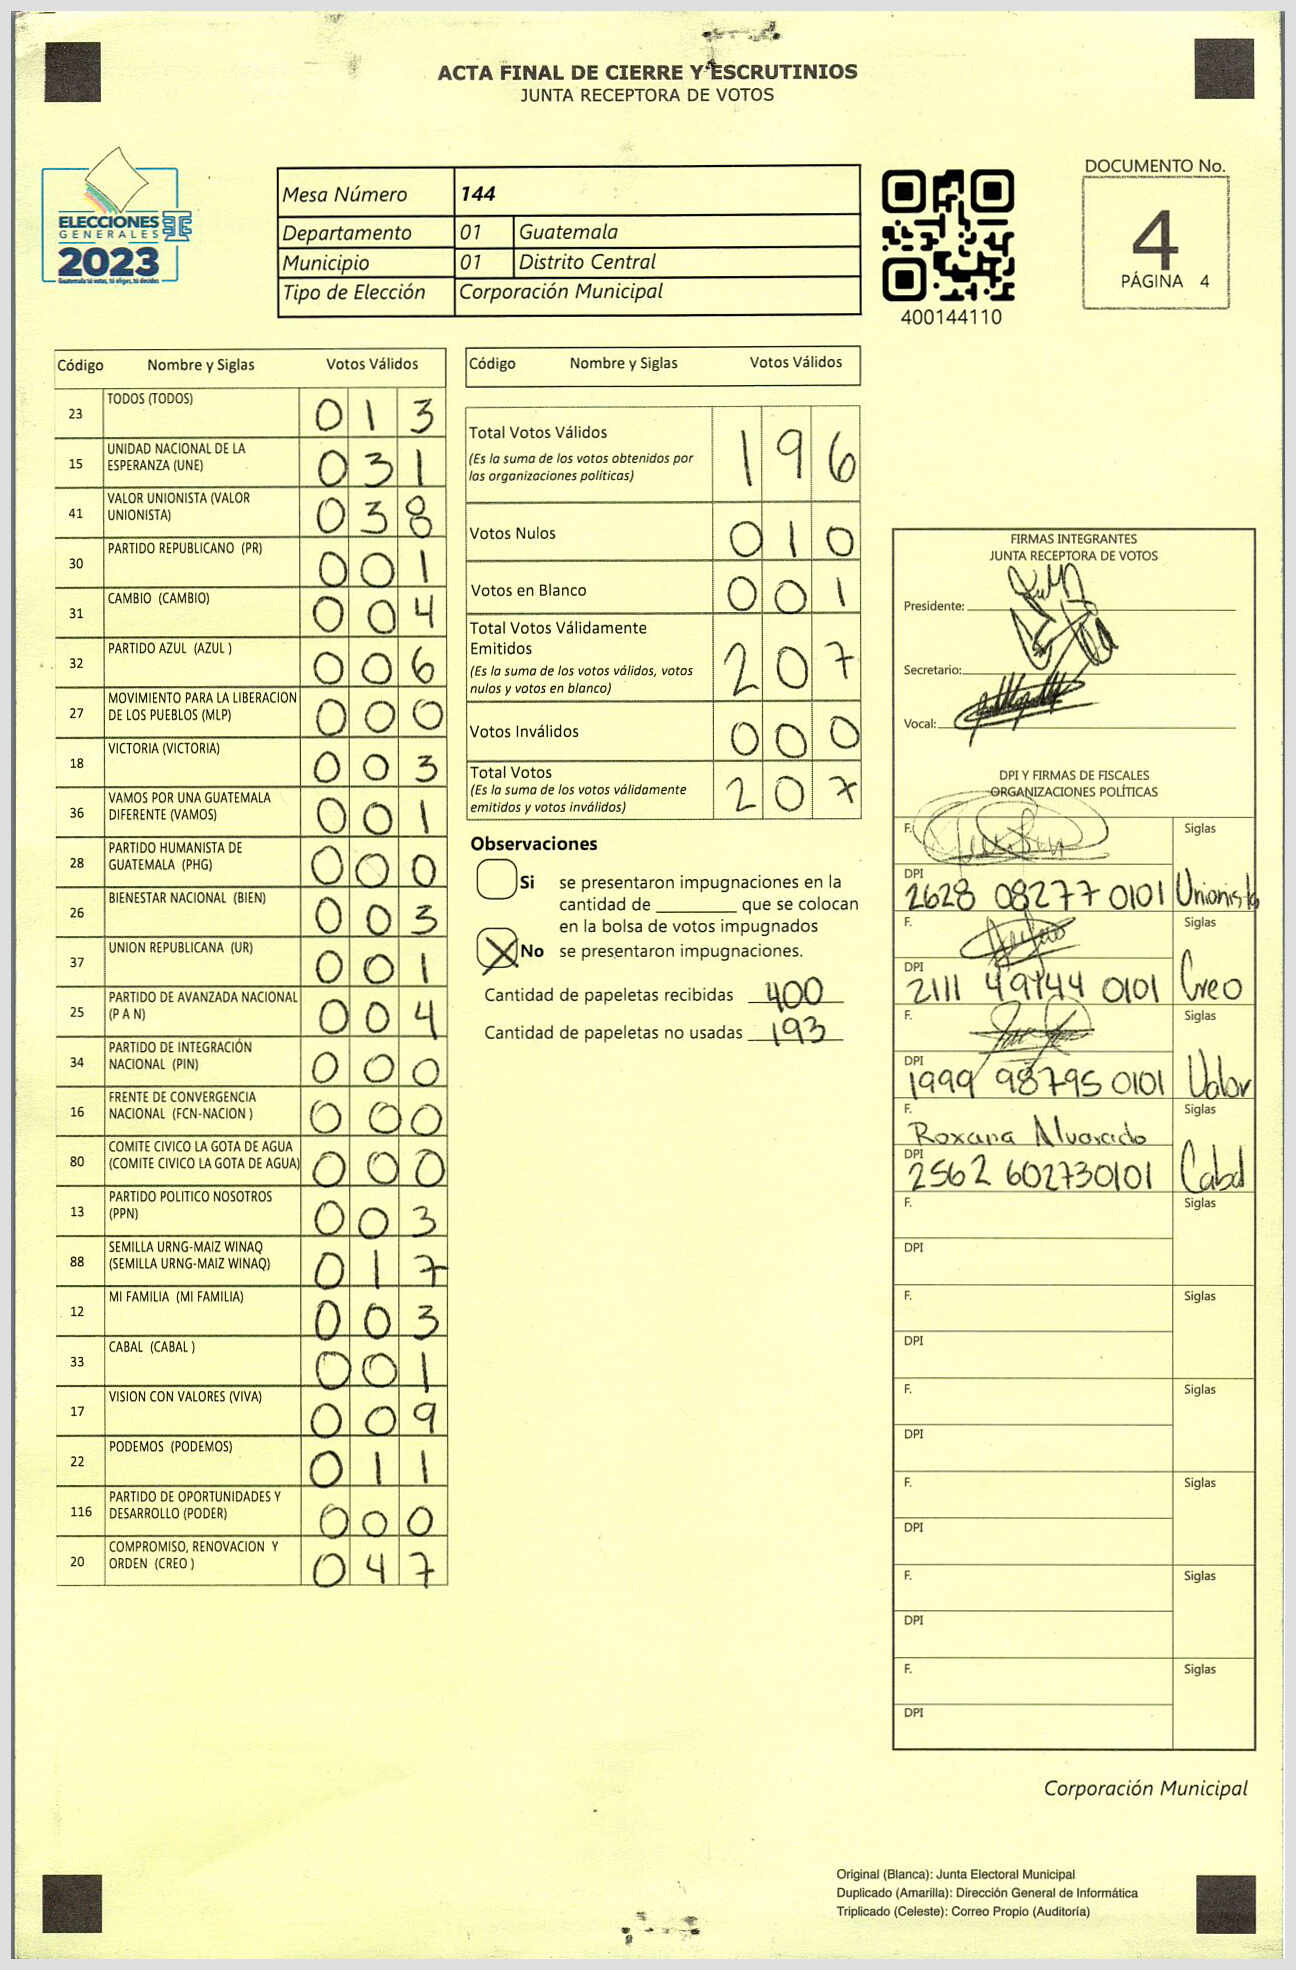 ACTA FINAL DE CIERRE Y ESCRUTINIOS
JUNTA RECEPTORA DE VOTOS
ELECCIONES
GENERALES
2023
Guatemala tú votas, tú eliges, tú decides
Mesa Número 144
Departamento 01 Guatemala
Municipio 01 Distrito Central
Tipo de Elección Corporación Municipal
400144110
DOCUMENTO No.
4
PÁGINA 4
Código Nombre y Siglas Votos Válidos
23 TODOS (TODOS) 0 1 3
15 UNIDAD NACIONAL DE LA
ESPERANZA (UNE) 0 3 1
41 VALOR UNIONISTA (VALOR
UNIONISTA) 0 3 8
30 PARTIDO REPUBLICANO (PR) 0 0 1
31 CAMBIO (CAMBIO) 0 0 4
32 PARTIDO AZUL (AZUL ) 0 0 6
27 MOVIMIENTO PARA LA LIBERACION
DE LOS PUEBLOS (MLP) 0 0 0
18 VICTORIA (VICTORIA) 0 0 3
36 VAMOS POR UNA GUATEMALA
DIFERENTE (VAMOS) 0 0 1
28 PARTIDO HUMANISTA DE
GUATEMALA (PHG) 0 0 0
26 BIENESTAR NACIONAL (BIEN) 0 0 3
37 UNION REPUBLICANA (UR) 0 0 1
25 PARTIDO DE AVANZADA NACIONAL
(P A N) 0 0 4
34 PARTIDO DE INTEGRACIÓN
NACIONAL (PIN) 0 0 0
16 FRENTE DE CONVERGENCIA
NACIONAL (FCN-NACION ) 0 0 0
80 COMITE CIVICO LA GOTA DE AGUA
(COMITE CIVICO LA GOTA DE AGUA) 0 0 0
13 PARTIDO POLITICO NOSOTROS
(PPN) 0 0 3
88 SEMILLA URNG-MAIZ WINAQ
(SEMILLA URNG-MAIZ WINAQ) 0 1 7
12 MI FAMILIA (MI FAMILIA) 0 0 3
33 CABAL (CABAL ) 0 0 1
17 VISION CON VALORES (VIVA) 0 0 9
22 PODEMOS (PODEMOS) 0 1 1
116 PARTIDO DE OPORTUNIDADES Y
DESARROLLO (PODER) 0 0 0
20 COMPROMISO, RENOVACION Y
ORDEN (CREO ) 0 4 7
Código Nombre y Siglas Votos Válidos
Total Votos Válidos 1 9 6
(Es la suma de los votos obtenidos por
las organizaciones políticas)
Votos Nulos 0 1 0
Votos en Blanco 0 0 1
Total Votos Válidamente
Emitidos 2 0 7
(Es la suma de los votos válidos, votos
nulos y votos en blanco)
Votos Inválidos 0 0 0
Total Votos 2 0 7
(Es la suma de los votos válidamente
emitidos y votos inválidos)
Observaciones
Si se presentaron impugnaciones en la
cantidad de ________ que se colocan
en la bolsa de votos impugnados
X No se presentaron impugnaciones.
Cantidad de papeletas recibidas 400
Cantidad de papeletas no usadas 193
FIRMAS INTEGRANTES
JUNTA RECEPTORA DE VOTOS
Presidente:
Secretario:
Vocal:
DPI Y FIRMAS DE FISCALES
ORGANIZACIONES POLÍTICAS
F. Siglas
DPI
2628 08277 0101 Unionista
F. Siglas
DPI
2111 49744 0101 Creo
F. Siglas
DPI
1999 98795 0101 Valor
F. Siglas
Roxana Alvarado
DPI
2562 602730101 Cabal
F. Siglas
DPI
F. Siglas
DPI
F. Siglas
DPI
F. Siglas
DPI
F. Siglas
DPI
F. Siglas
DPI
Corporación Municipal
Original (Blanca): Junta Electoral Municipal
Duplicado (Amarilla): Dirección General de Informática
Triplicado (Celeste): Correo Propio (Auditoría)